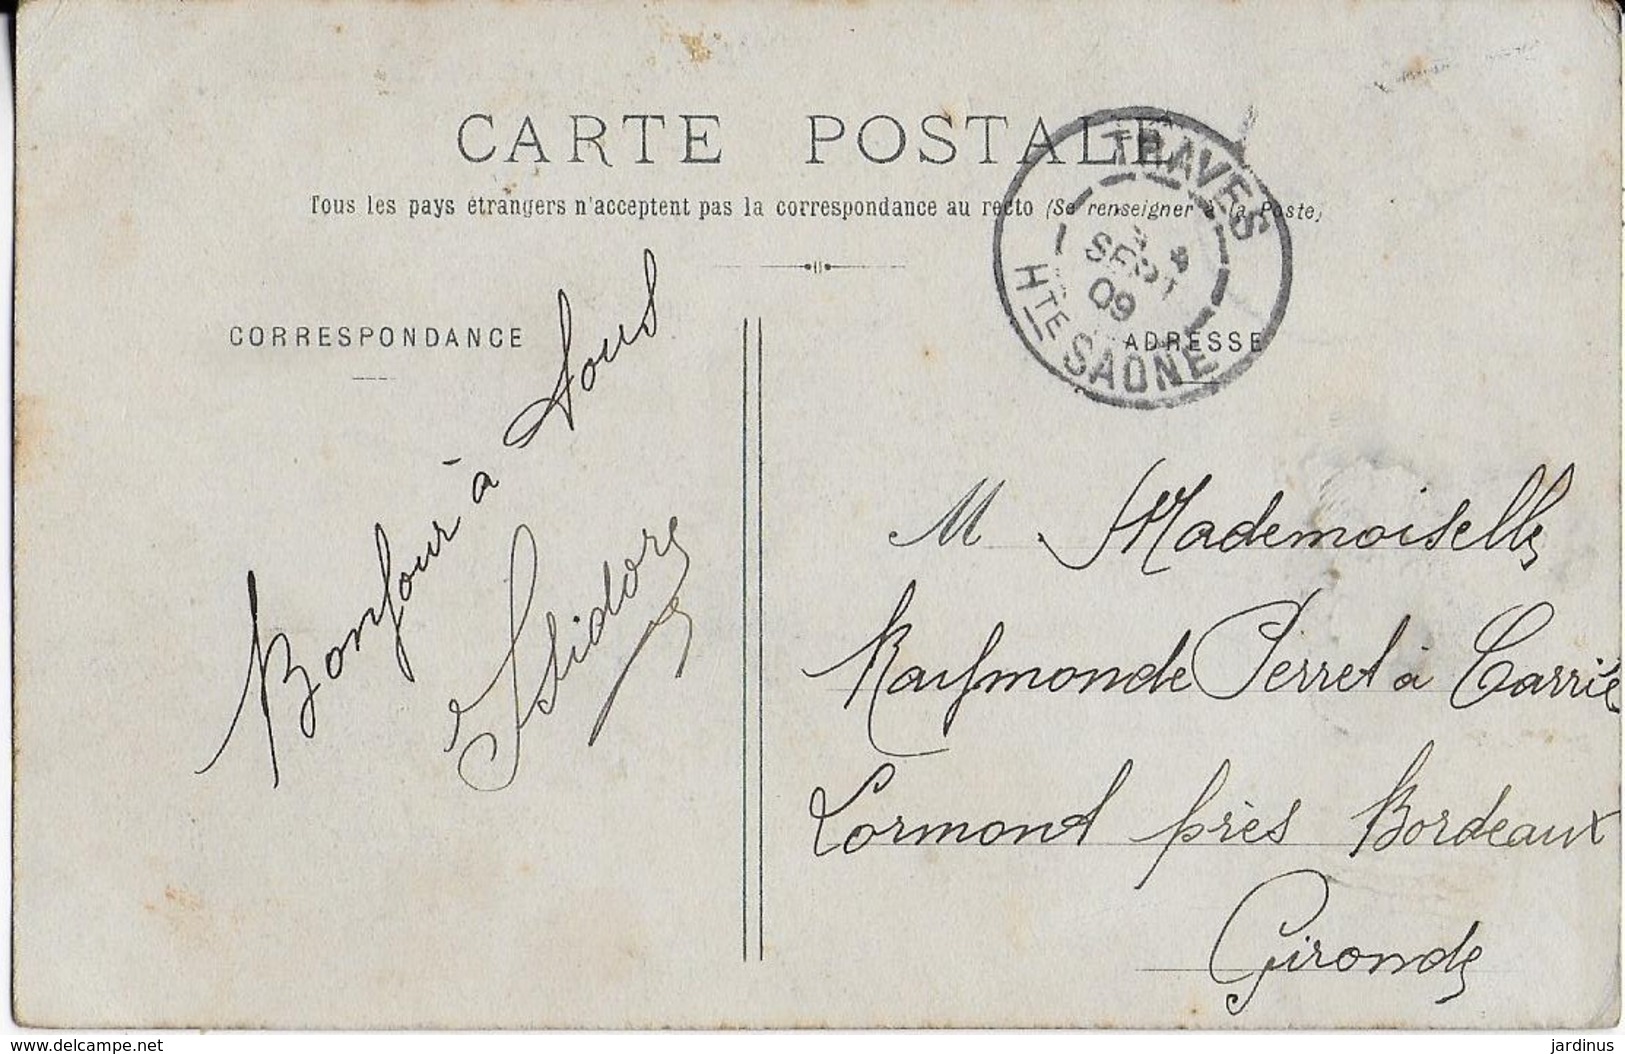 CARTE POSTALE
Tous les pays étrangers n'acceptent pas la correspondance au recto (Se renseigner à la Poste)
TRAVES
SEPT
09
Hte SAONE
CORRESPONDANCE
ADRESSE
Bonjour à tous
Isidore
M Mademoiselle
Raymonde Perret à Carriès
Lormont près Bordeaux
Gironde
www.delcampe.net
jardinus